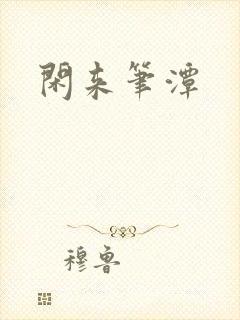 閑来筆潭
穆鲁